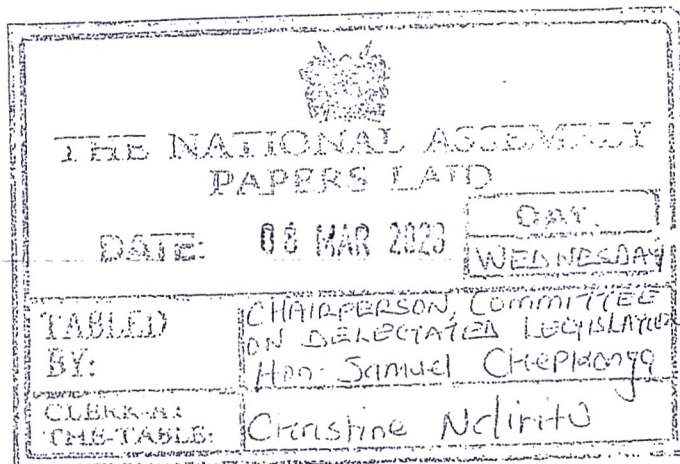 THE NATIONAL ASSEMBLY
PAPERS LAID
DATE: 08 MAR 2023
DAY.
WEDNESDAY
TABLED
BY:
CHAIRPERSON, COMMITTEE
ON DELEGATED LEGISLATION
Hon. Samuel Chepkonga
CLERK-AT
THE-TABLE:
Christine Ndiritu